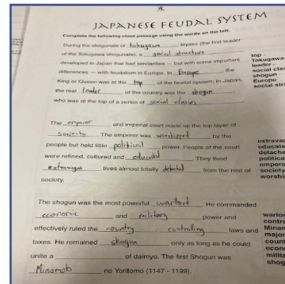 JAPANESE FEUDAL SYSTEM
Complete the following cloze passage using the words on the left.
During the shogunate of tokugawa Ieyasu (the first leader
of the Tokugawa shogunate), a social structure
developed in Japan that had similarities – but with some important
differences – with feudalism in Europe. In Europe the
King or Queen was at the top of the feudal system; in Japan,
the real leader of the country was the shogun
who was at the top of a series of social classes
The emperor and imperial court made up the top layer of
society. The emperor was worshipped by the
people but held little political power. People of the court
were refined, cultured and educated. They lived
extravagant lives almost totally detached from the rest of
society.
The shogun was the most powerful warlord. He commanded
economic and military power and
effectively ruled the country, controlling laws and
taxes. He remained shogun only as long as he could
unite a of daimyo. The first Shogun was
Minamoto no Yoritomo (1147 - 1199).
top
tokugawa
leader
social
shogun
Europe
social